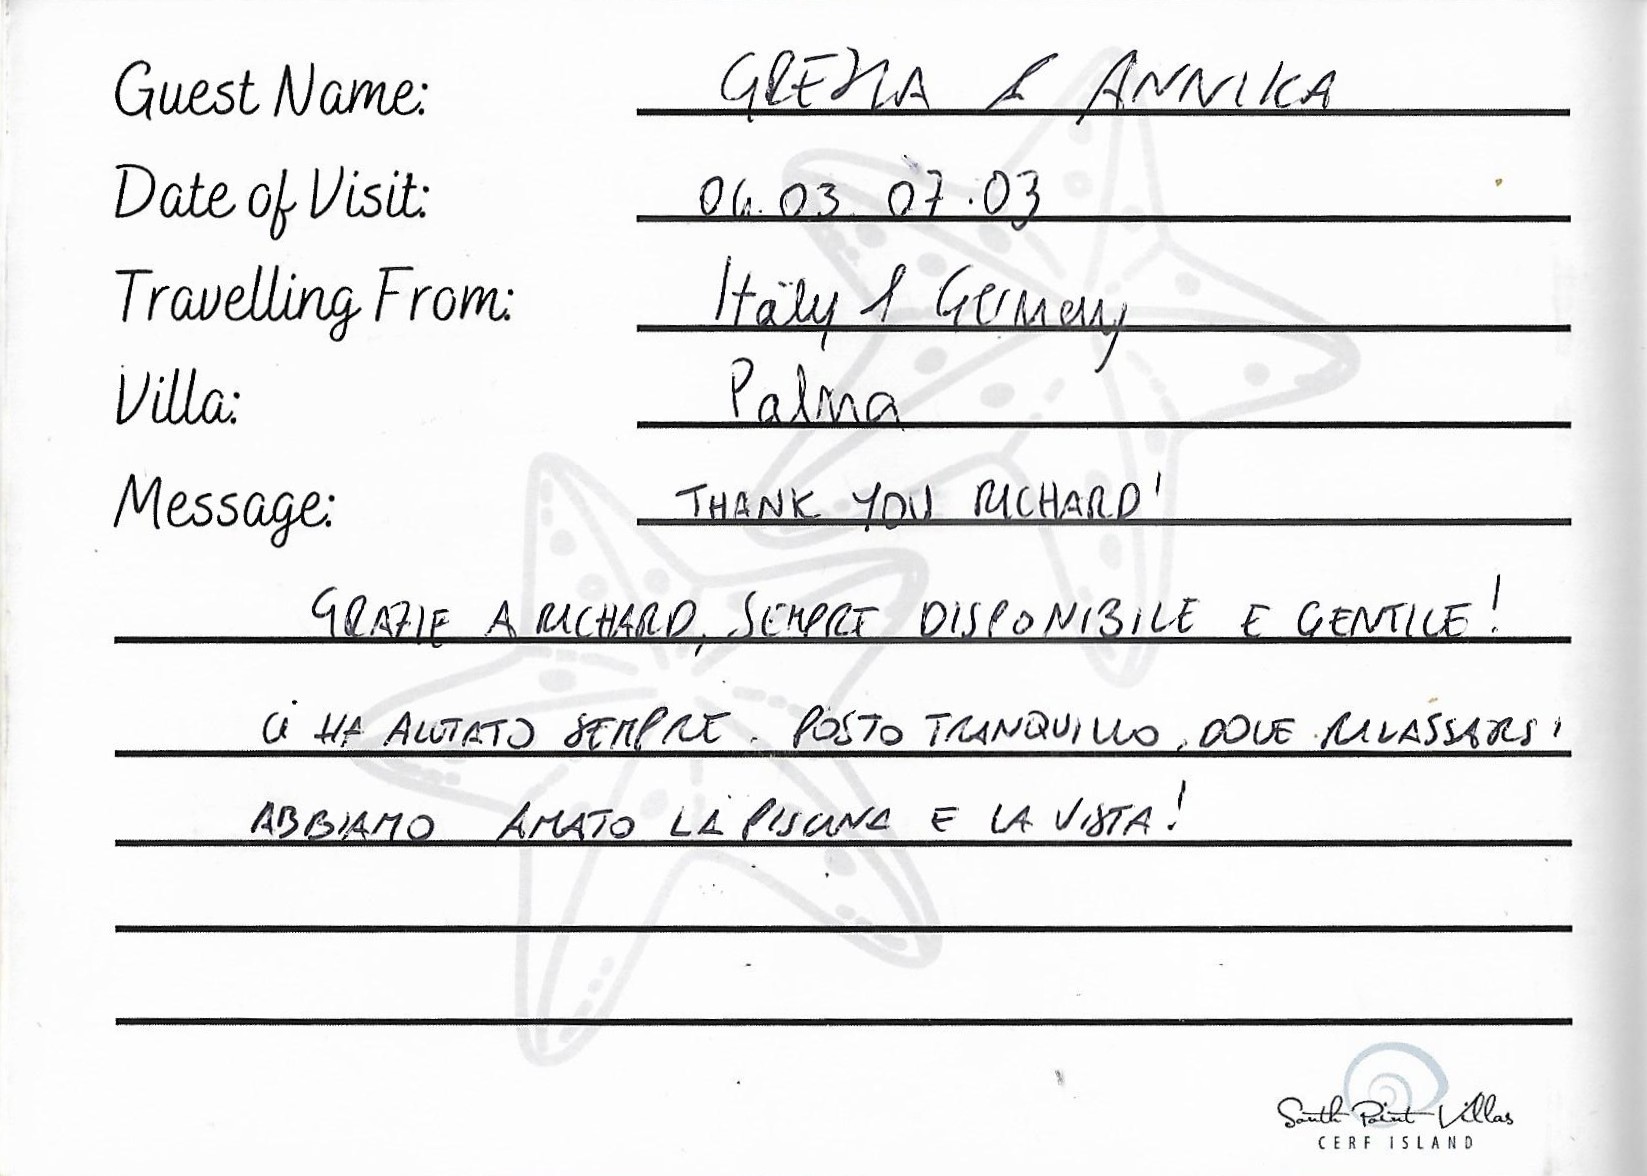 Guest Name: GREZIA & ANNIKA
Date of Visit: 04.03. 07.03
Travelling From: Italy & Germany
Villa: Palma
Message: THANK YOU RICHARD!
GRAZIE A RICHARD, SEMPRE DISPONIBILE E GENTILE!
CI HA AIUTATO SEMPRE. POSTO TRANQUILLO, DOVE RILASSARSI
ABBIAMO AMATO LA PISCINA E LA VISTA!
South Point Villas
CERF ISLAND